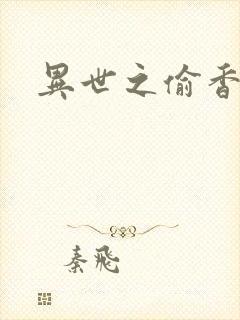 異世之偷香
秦飛